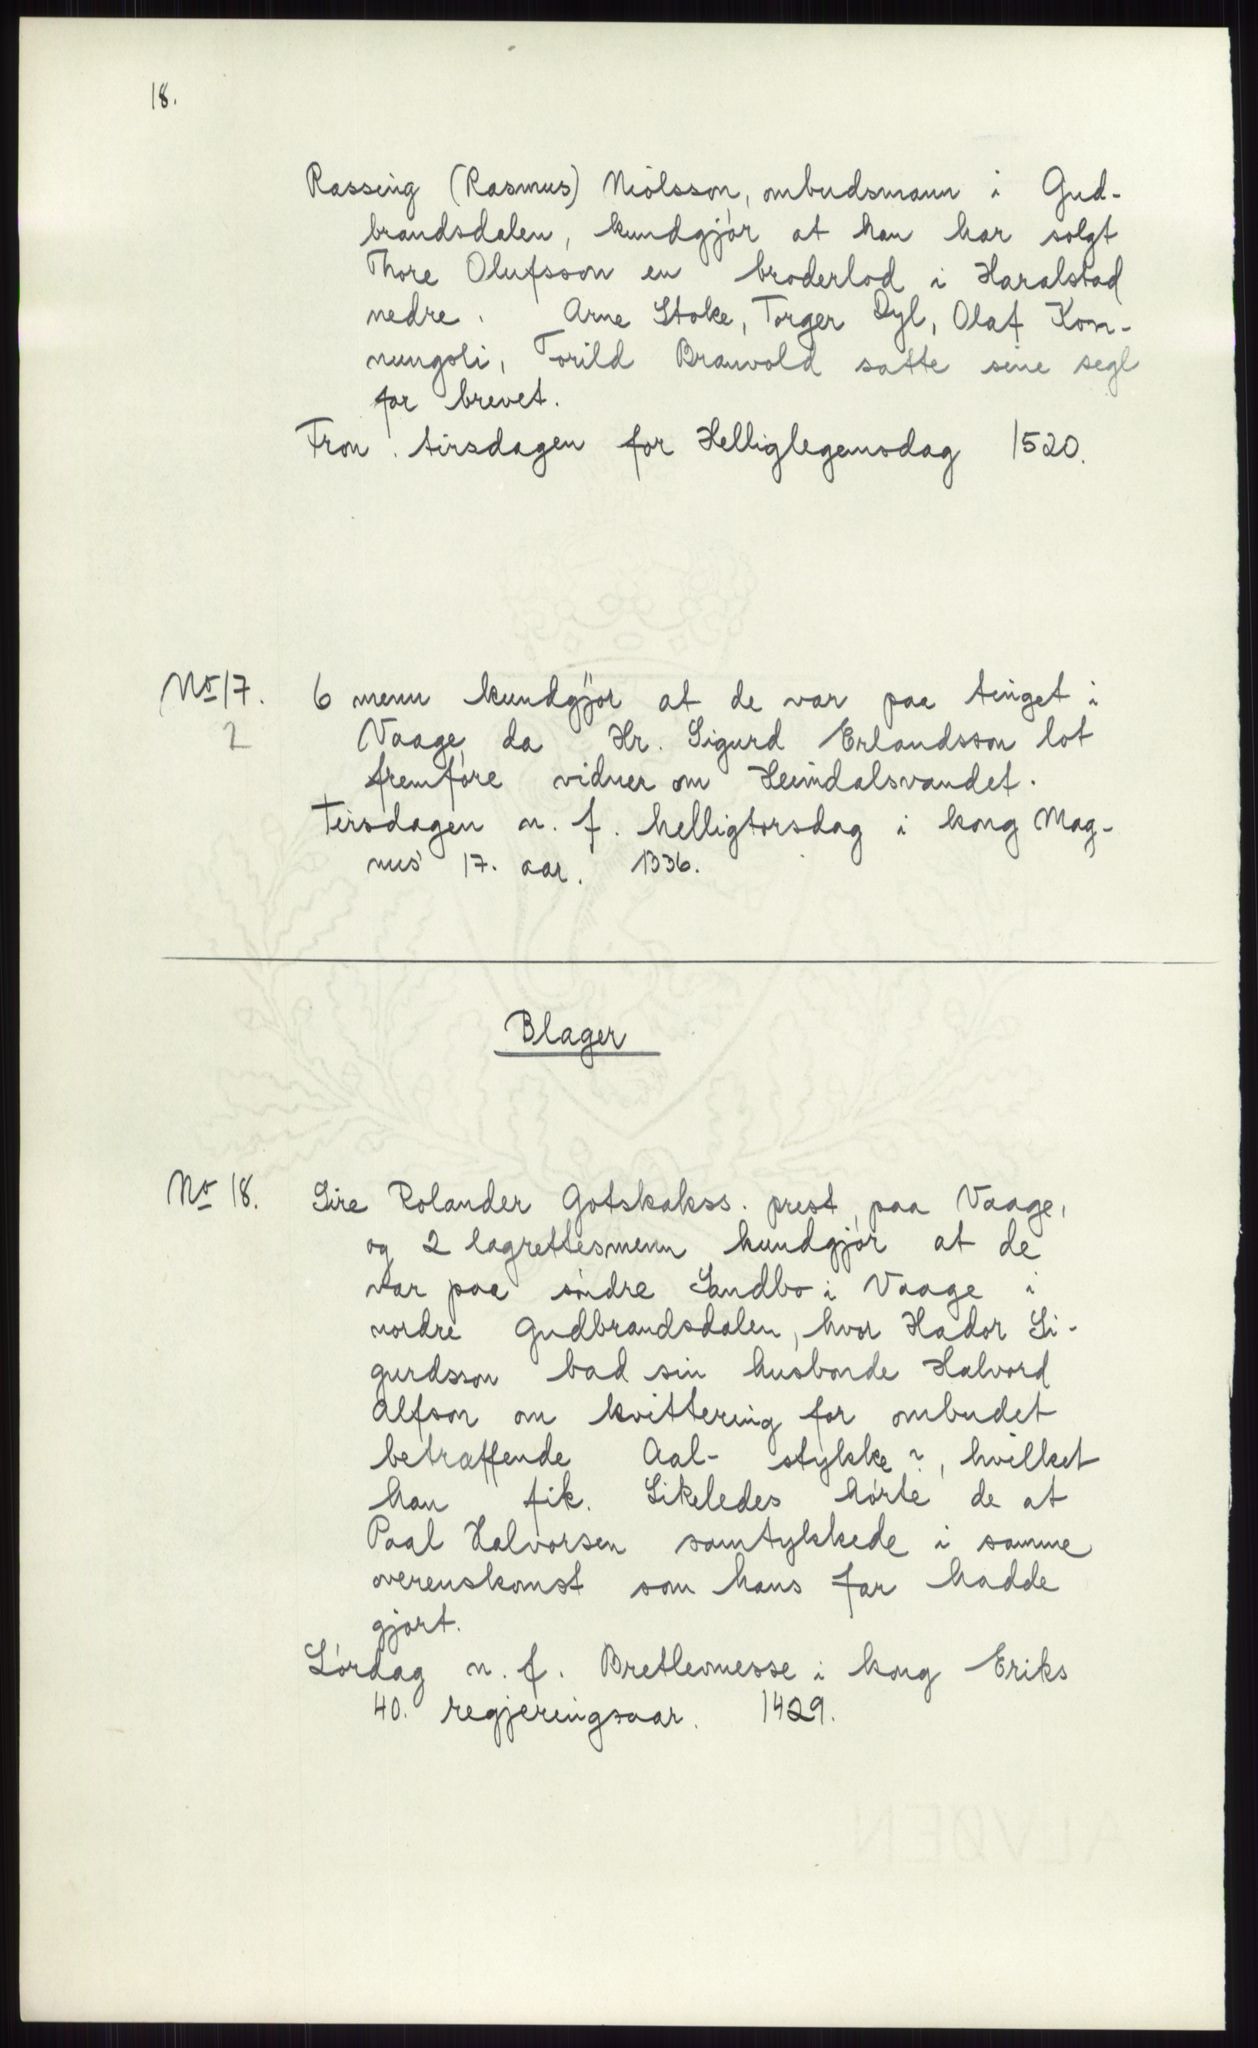 18.
Rassing (Rasmus) Niólsson, ombudsmann i Gud-
brandsdalen, kundgjór at han har solgt
Thore Olufsson en broderlod i Haralstad
nedre. Arne Stoke, Torger Dyl, Olaf Kon-
nungsli, Torild Branvold satte sine segl
for brevet.
Fron. tirsdagen for Helliglegemsdag 1520.
No 17. 6 menn kundgjör at de var paa tinget i
2 Vaage, da Hr. Sigurd Erlandsson lot
fremfóre vidner om Heimdalsvandet.
Tirsdagen n. f. helligtorsdag i kong Mag-
nus' 17. aar. 1336.
Blager
No 18. Sire Rolander Gotskakss. prest, paa Vaage,
og 2 lagrettesmenn kundgjór at de
var paa sóndre Sandbo i Vaage i
nordre Gudbrandsdalen, hvor Hador Si-
gurdsson bad sin husbonde Halvord
Alfson om kvittering for ombudet
betræffende Aal- stykke?, hvilket
han fik. Likeledes hórte de at
Paal Halvorsen samtykkede i samme
overenskomst som hans far hadde
gjort.
Lórdag n. f. Bretlevmesse i kong Eriks
40. regjeringsaar. 1429.
ALVØEN